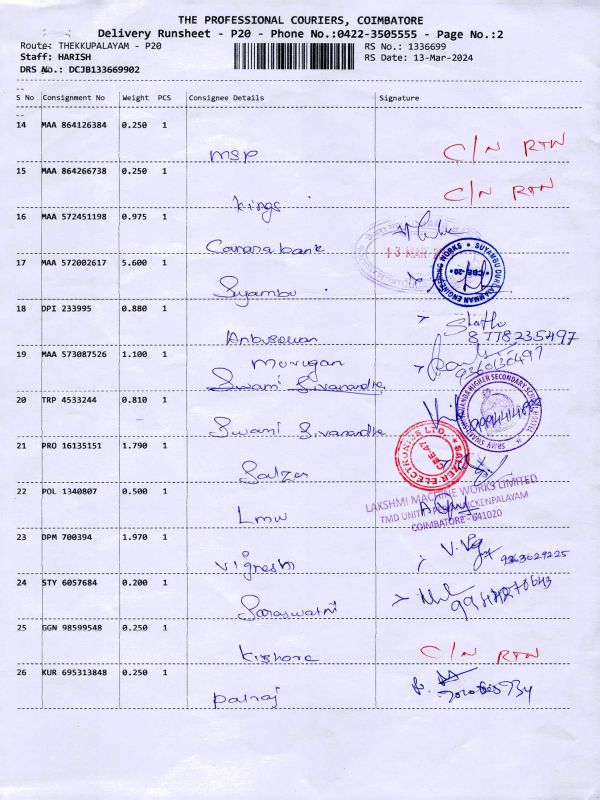 THE PROFESSIONAL COURIERS, COIMBATORE
Delivery Runsheet - P20 - Phone No.:0422-3505555 - Page No.:2
Route: THEKKUPALAYAM - P20
RS No.: 1336699
Staff: HARISH
RS Date: 13-Mar-2024
DRS No.: DCJB133669902
--
S No Consignment No Weight PCS Consignee Details Signature
--
14 MAA 864126384 0.250 1
msp C/N RTN
15 MAA 864266738 0.250 1
kings C/N RTN
16 MAA 572451198 0.975 1
Canara bank
13 MAR
17 MAA 572002617 5.600 1
Suyambu
SUYAMBU DURGAIAMMAN ENGINEERING WORKS
CBE-20
18 DPI 233995 0.880 1
8778235497
19 MAA 573087526 1.100 1
Murugan
Swami Sivanandha
20 TRP 4533244 0.810 1
Swami Sivanandha
HIGHER SECONDARY SCHOOL
21 PRO 16135151 1.790 1
Salzer
SALZER ELECTRONICS LTD.
CBE-47
22 POL 1340807 0.500 1
Lmw
LAKSHMI MACHINE WORKS LIMITED
COIMBATORE - 641020
23 DPM 700394 1.970 1
Vignesh
9363029225
24 STY 6057684 0.200 1
Saraswathi
25 GGN 98599548 0.250 1
Kishore C/N RTN
26 KUR 695313848 0.250 1
palraj